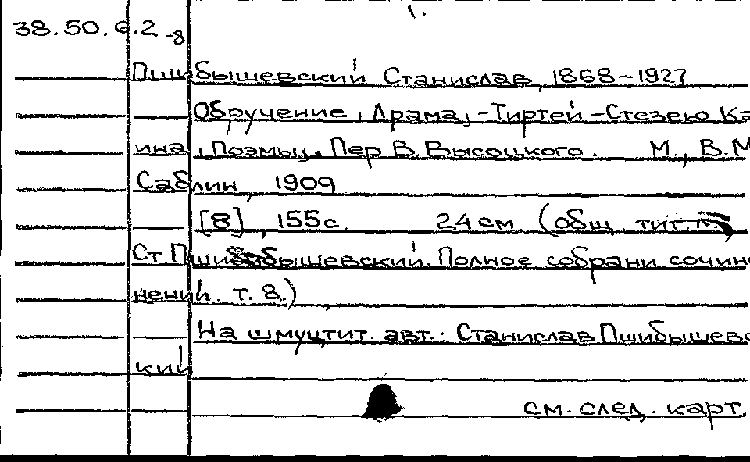 38.50.6.2-8
Пшибышевский Станислав, 1868-1927
Обручение, Драма, -Тиртей -Стезею Ка
ина, Поэмы, Пер В. Высоцкого. М., В.М
Саблин, 1909
[8], 155с. 24см (общ. тит. л.
Ст Пшибышевский. Полное собрани сочин
нений. т. 8.)
На шмуцтит. авт.: Станислав Пшибышевс
кий
см. след. карт.